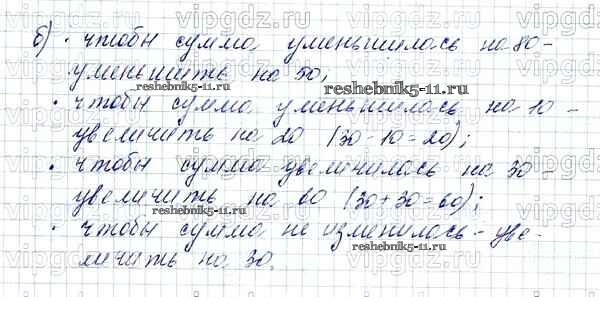 б) · чтобы сумма уменьшилась на 80 -
уменьшить на 50;
reshebnik5-11.ru
· чтобы сумма уменьшилась на 10 -
увеличить на 20 (30-10=20);
· чтобы сумма увеличилась на 30 -
увеличить на 60 (30+30=60);
reshebnik5-11.ru
· чтобы сумма не изменилась - уве-
reshebnik5-11.ru
личить на 30.
vipgdz.ru